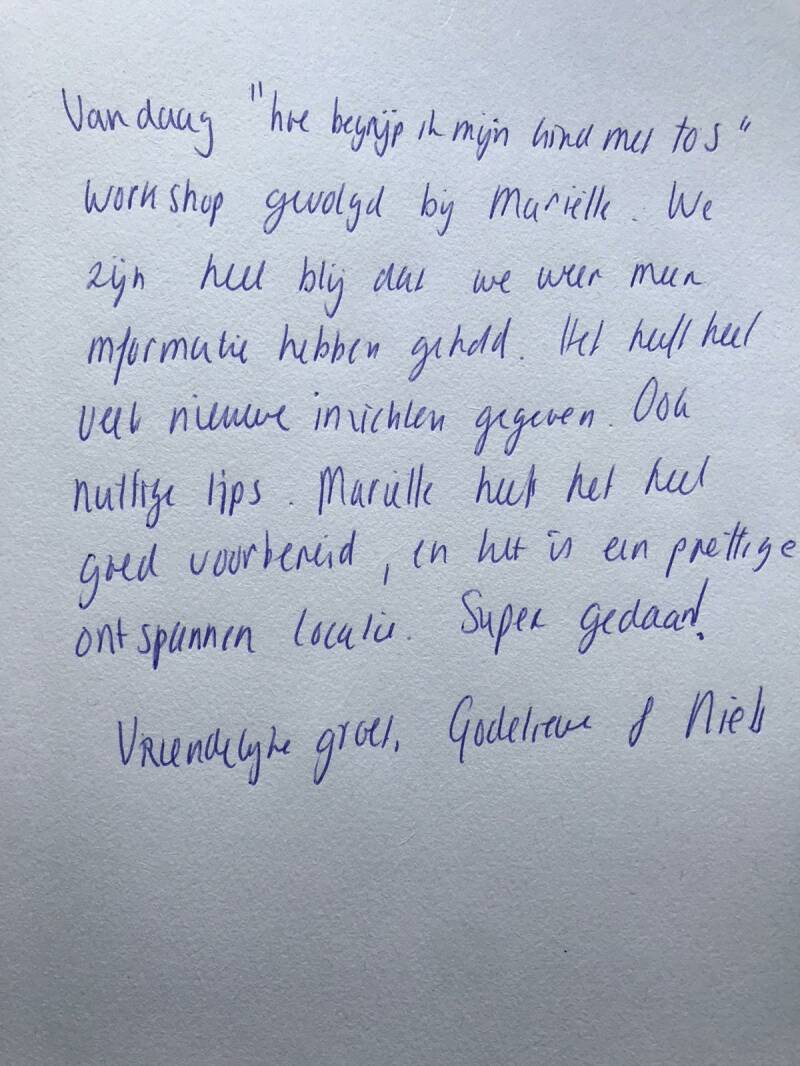 Vandaag "hoe begrijp ik mijn kind met tos"
workshop gevolgd bij Mariëlle. We
zijn heel blij dat we weer meer
informatie hebben gehad. Het heeft heel
veel nieuwe inzichten gegeven. Ook
nuttige tips. Mariëlle heeft het heel
goed voorbereid, en het is een prettige
ontspannen locatie. Super gedaan!
Vriendelijke groet, Godelieve & Niels